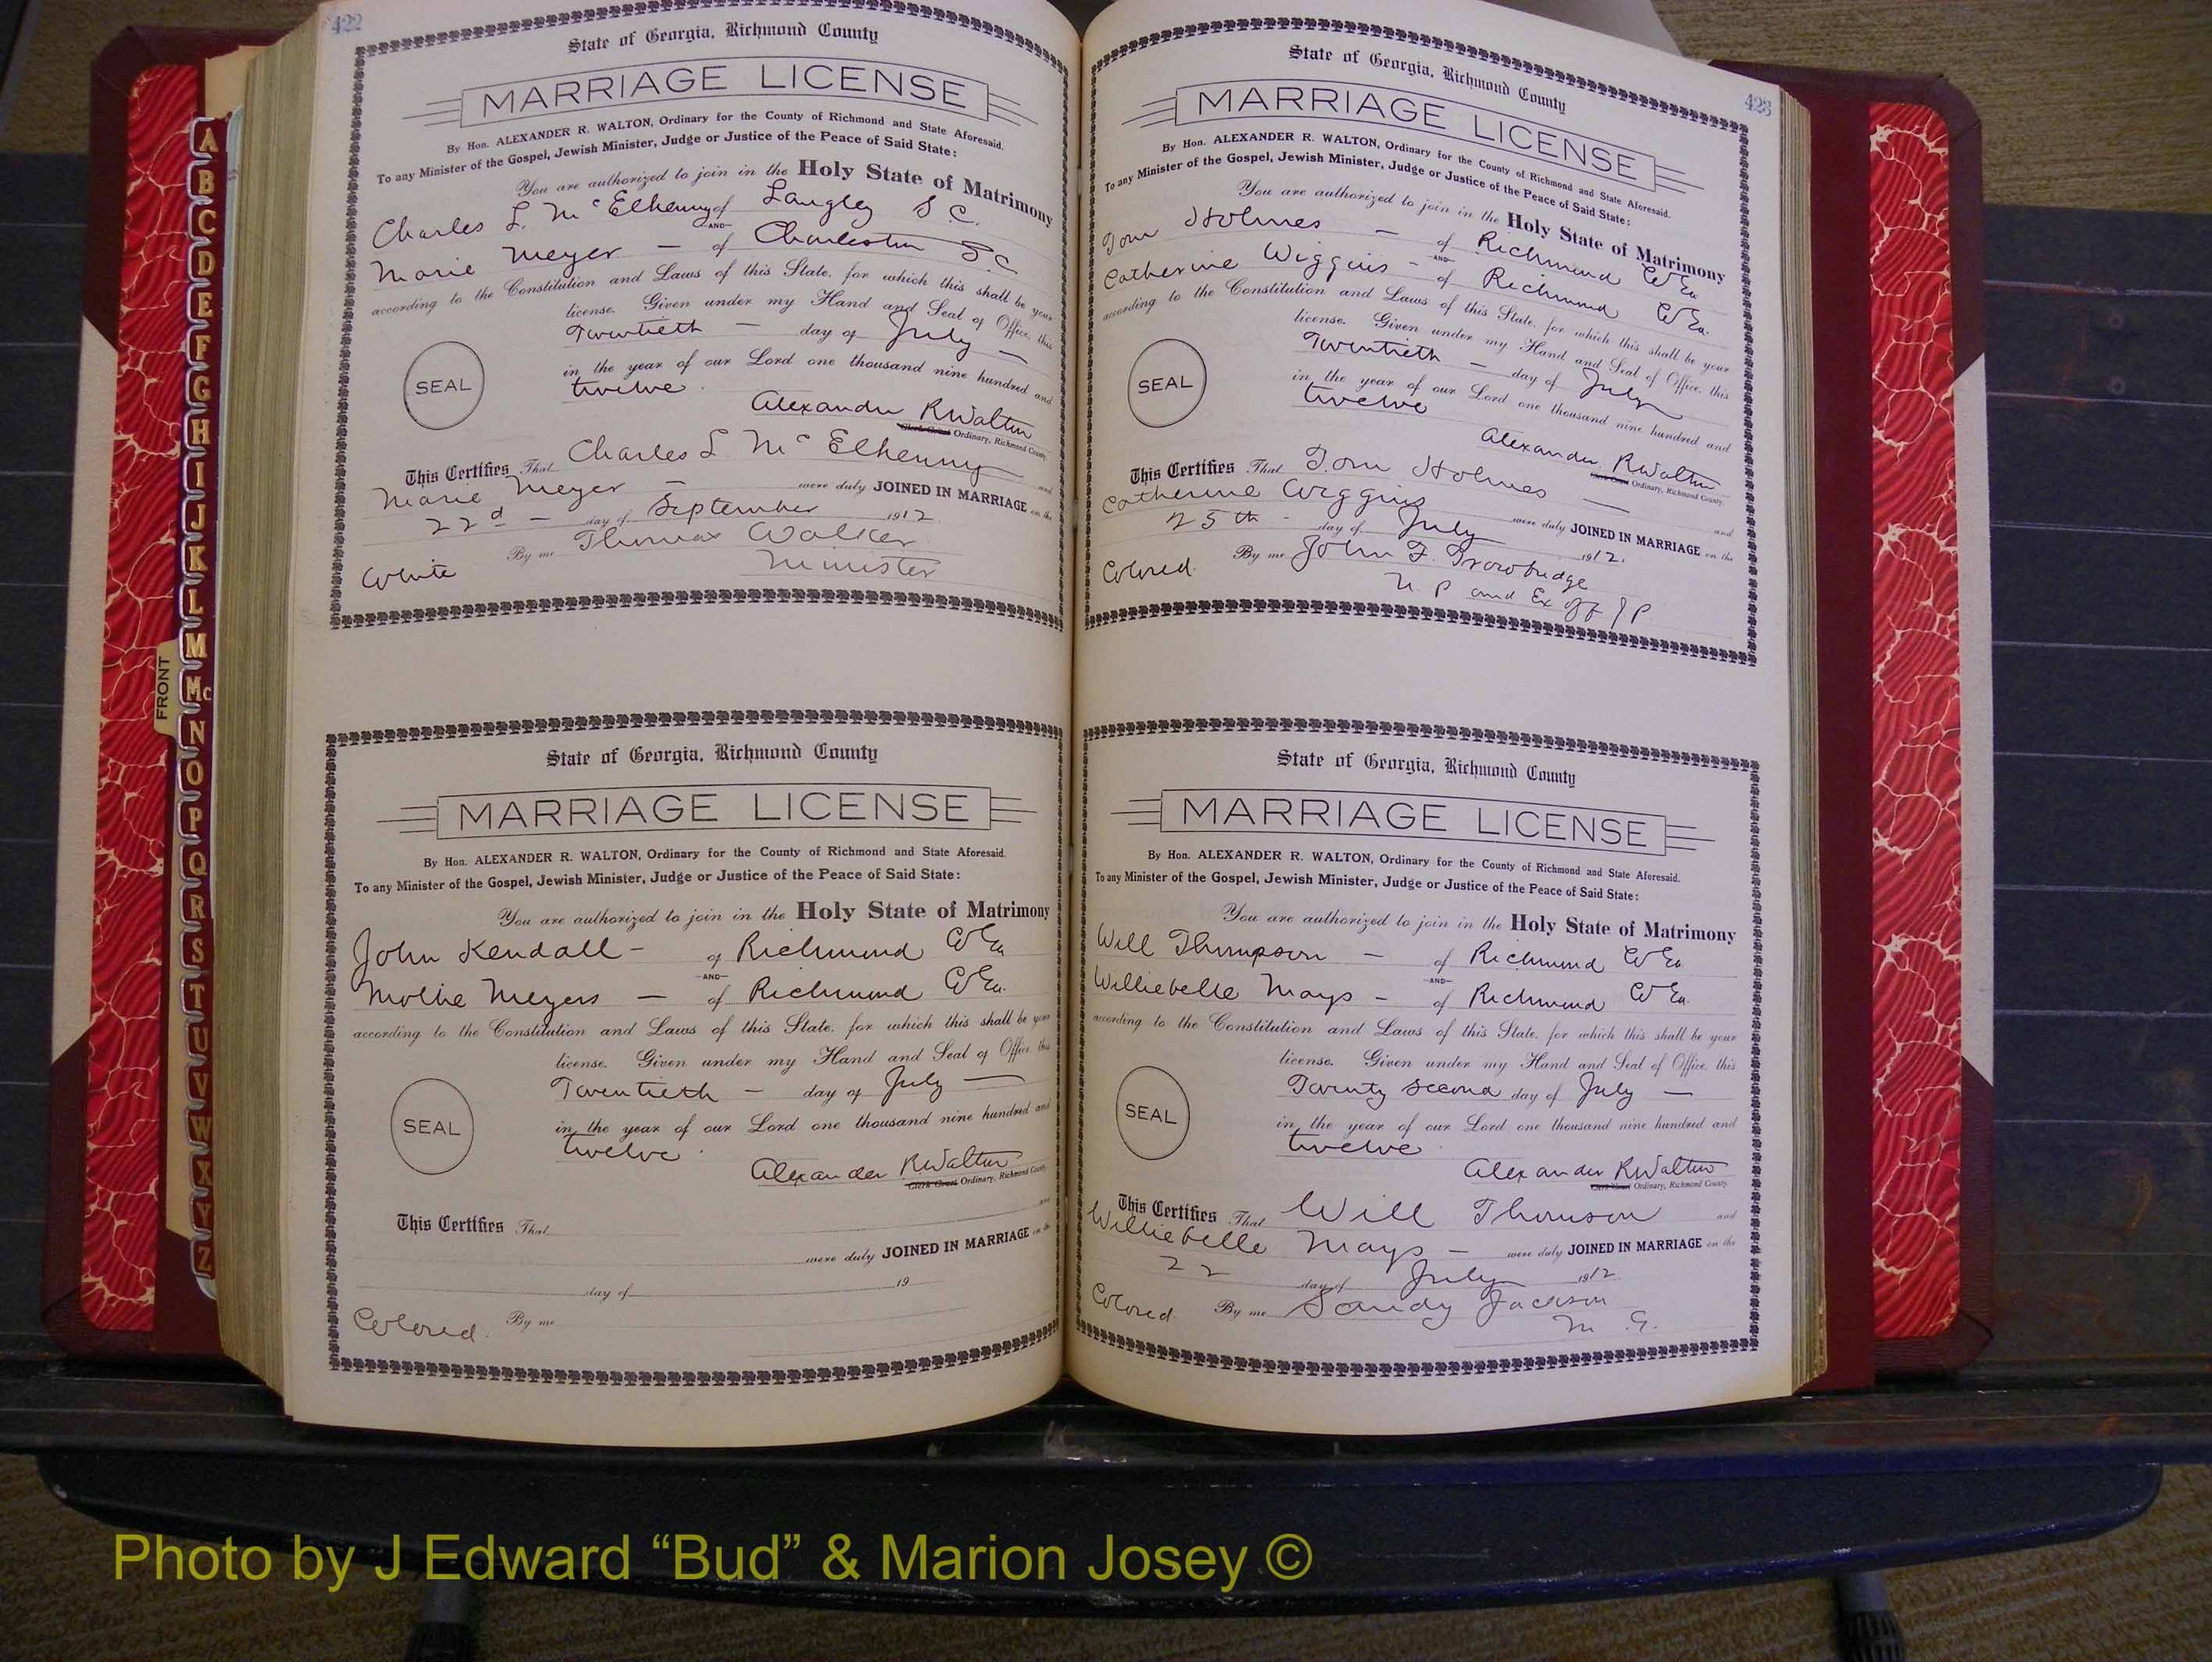 422
State of Georgia, Richmond County
MARRIAGE LICENSE
By Hon. ALEXANDER R. WALTON, Ordinary for the County of Richmond and State Aforesaid.
To any Minister of the Gospel, Jewish Minister, Judge or Justice of the Peace of Said State:
You are authorized to join in the Holy State of Matrimony
Charles L. McElhenny of Langley S.C.
AND
Marie Meyer — of Charleston S.C
according to the Constitution and Laws of this State, for which this shall be your
license. Given under my Hand and Seal of Office, this
Twentieth — day of July —
in the year of our Lord one thousand nine hundred and
twelve.
SEAL
Alexander R Walton
Clerk Court Ordinary, Richmond County
This Certifies That Charles L McElhenny and
Marie Meyer — were duly JOINED IN MARRIAGE on the
22d — day of September 1912
By me Thomas Walker
White Minister
State of Georgia, Richmond County
MARRIAGE LICENSE
By Hon. ALEXANDER R. WALTON, Ordinary for the County of Richmond and State Aforesaid.
To any Minister of the Gospel, Jewish Minister, Judge or Justice of the Peace of Said State:
You are authorized to join in the Holy State of Matrimony
John Kendall — of Richmond Co Ga
AND
Mollie Meyers — of Richmond Co Ga.
according to the Constitution and Laws of this State, for which this shall be your
license. Given under my Hand and Seal of Office, this
Twentieth — day of July —
in the year of our Lord one thousand nine hundred and
twelve.
SEAL
Alexander R Walton
Clerk Court Ordinary, Richmond County
This Certifies That and
were duly JOINED IN MARRIAGE on the
day of 19
Colored. By me
423
State of Georgia, Richmond County
MARRIAGE LICENSE
By Hon. ALEXANDER R. WALTON, Ordinary for the County of Richmond and State Aforesaid.
To any Minister of the Gospel, Jewish Minister, Judge or Justice of the Peace of Said State:
You are authorized to join in the Holy State of Matrimony
Tom Holmes — of Richmond Co Ga
AND
Catherine Wiggins — of Richmond Co Ga.
according to the Constitution and Laws of this State, for which this shall be your
license. Given under my Hand and Seal of Office, this
Twentieth — day of July
in the year of our Lord one thousand nine hundred and
twelve
SEAL
Alexander R Walton
Clerk Court Ordinary, Richmond County
This Certifies That Tom Holmes — and
Catherine Wiggins were duly JOINED IN MARRIAGE on the
25th — day of July 1912.
Colored. By me John F. Trowbridge
N. P and Ex off J P
State of Georgia, Richmond County
MARRIAGE LICENSE
By Hon. ALEXANDER R. WALTON, Ordinary for the County of Richmond and State Aforesaid.
To any Minister of the Gospel, Jewish Minister, Judge or Justice of the Peace of Said State:
You are authorized to join in the Holy State of Matrimony
Will Thompson — of Richmond Co Ga
AND
Williebelle Mays — of Richmond Co Ga.
according to the Constitution and Laws of this State, for which this shall be your
license. Given under my Hand and Seal of Office, this
Twenty second day of July —
in the year of our Lord one thousand nine hundred and
twelve.
SEAL
Alexander R Walton
Clerk Court Ordinary, Richmond County.
This Certifies That Will Thomson and
Williebelle Mays — were duly JOINED IN MARRIAGE on the
22 day of July 1912.
Colored. By me Sandy Jackson
M. G.
FRONT
A
B
C
D
E
F
G
H
I
J
K
L
M
Mc
N
O
P
Q
R
S
T
U
V
W
X
Y
Z
Photo by J Edward “Bud” & Marion Josey ©